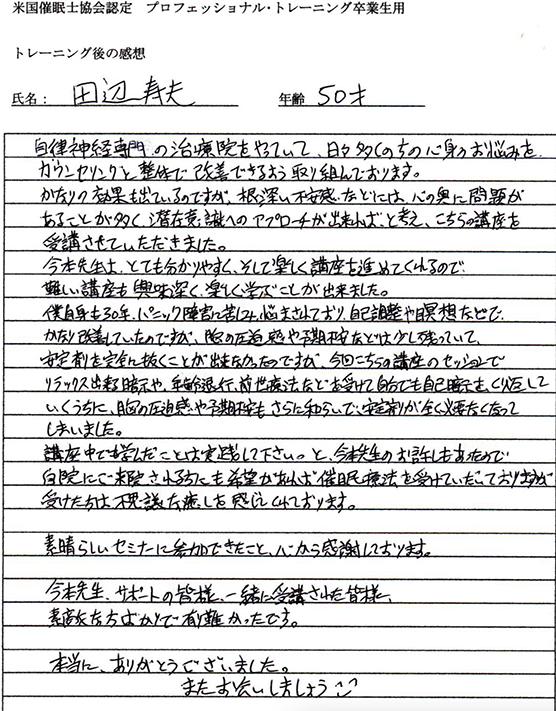 米国催眠士協会認定 プロフェッショナル・トレーニング卒業生用
トレーニング後の感想
氏名： 田辺寿夫 年齢 50才
自律神経専門の治療院をやっていて、日々多くの方の心身のお悩みを
カウンセリングと整体で改善できるよう取り組んでおります。
かなりの効果も出ているのですが、根深い不安感などには、心の奥に問題が
あることが多く、潜在意識へのアプローチが出来ればと考え、こちらの講座を
受講させていただきました。
今本先生は、とても分かりやすく、そして楽しく講座を進めてくれるので
難しい講座も興味深く、楽しく学ぶことが出来ました。
僕自身も30年、パニック障害に苦しみ、悩まされており、自己調整や瞑想などで、
かなり改善していたのですが、胸の圧迫感や予期不安などは少し残っていて、
安定剤を完全に抜くことが出来なかったのですが、今回こちらの講座のセッションで
リラックス出来る暗示や、年齢退行、前世療法などを受けて自分でも自己暗示をくり返して
いくうちに、胸の圧迫感や予期不安もさらに和らいで、安定剤が全く必要なくなって
しまいました。
講座中でも学んだことは実践して下さい。と、今本先生のお許しもあったので
自院にご来院される方にも希望があれば催眠療法を受けていただいておりますが
受けた方は不思議な癒しを感じてくれております。
素晴らしいセミナーに参加できたこと、心から感謝しております。
今本先生、サポートの皆様、一緒に受講された皆様、
素敵な方ばかりで有難かったです。
本当に、ありがとうございました。
またお会いしましょう